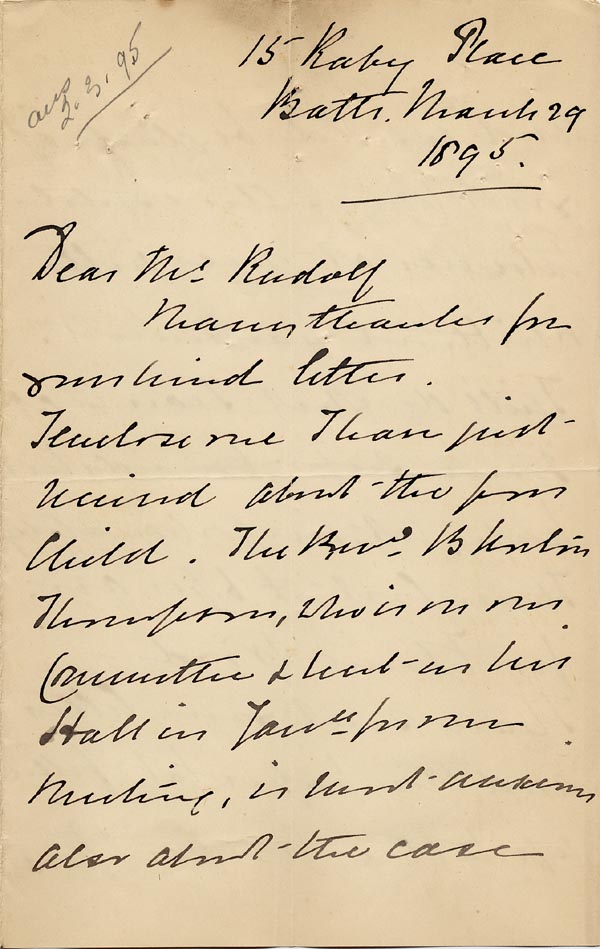 ans
2.3.95
15 Raby Place
Bath. March 29
1895.
Dear Mr. Rudolf
Many thanks for
your kind letter.
I enclose one I have just
received about the poor
Child. The Revd. B
Thompson, who is on our
Committee & lent us his
Hall in Jany. for our
Meeting, is most anxious
also about the case